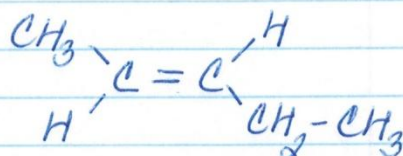 CH₃ H
C = C
H CH₂-CH₃